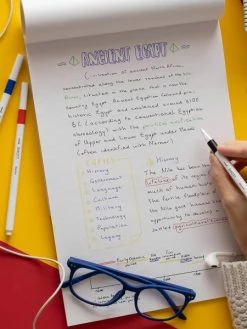 ANCIENT EGYPT
Civilization of ancient North Africa,
concentrated along the lower reaches of the Nile
River, situated in the place that is now the
country Egypt. Ancient Egyptian followed pre-
historic Egypt and coalesced around 3100
BC (according to conventional Egyptian
chronology) with the political unification
of Upper and Lower Egypt under Menes
(often identified with Narmer)
TOPICS
History
Government
Language
Culture
Military
Technology
Population
Legacy
History
The Nile has been the
lifeline of its region
much of human history
The fertile floodplain
the Nile gave humans
opportunity to develop
called
Early Dynastic
period